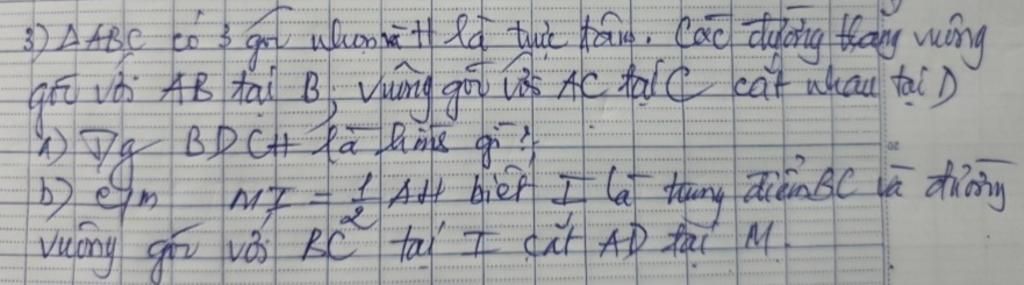 3) ΔABC có 3 góc nhọn và H là trực tâm. Các đường thẳng vuông
góc với AB tại B, vuông góc với AC tại C cắt nhau tại D
a) Tg BDCH là hình gì?
b) c/m MI = 1/2 AH biết I là trung điểm BC và đường
vuông góc với BC tại I cắt AD tại M.